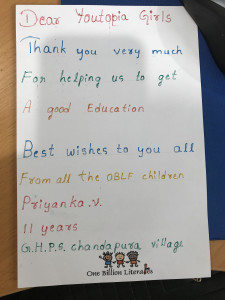 Dear Youtopia Girls
Thank you very much
For helping us to get
A good Education
Best wishes to you all
From all the OBLF children
Priyanka.V.
11 years
G.H.P.S. chandapura village
One Billion Literates